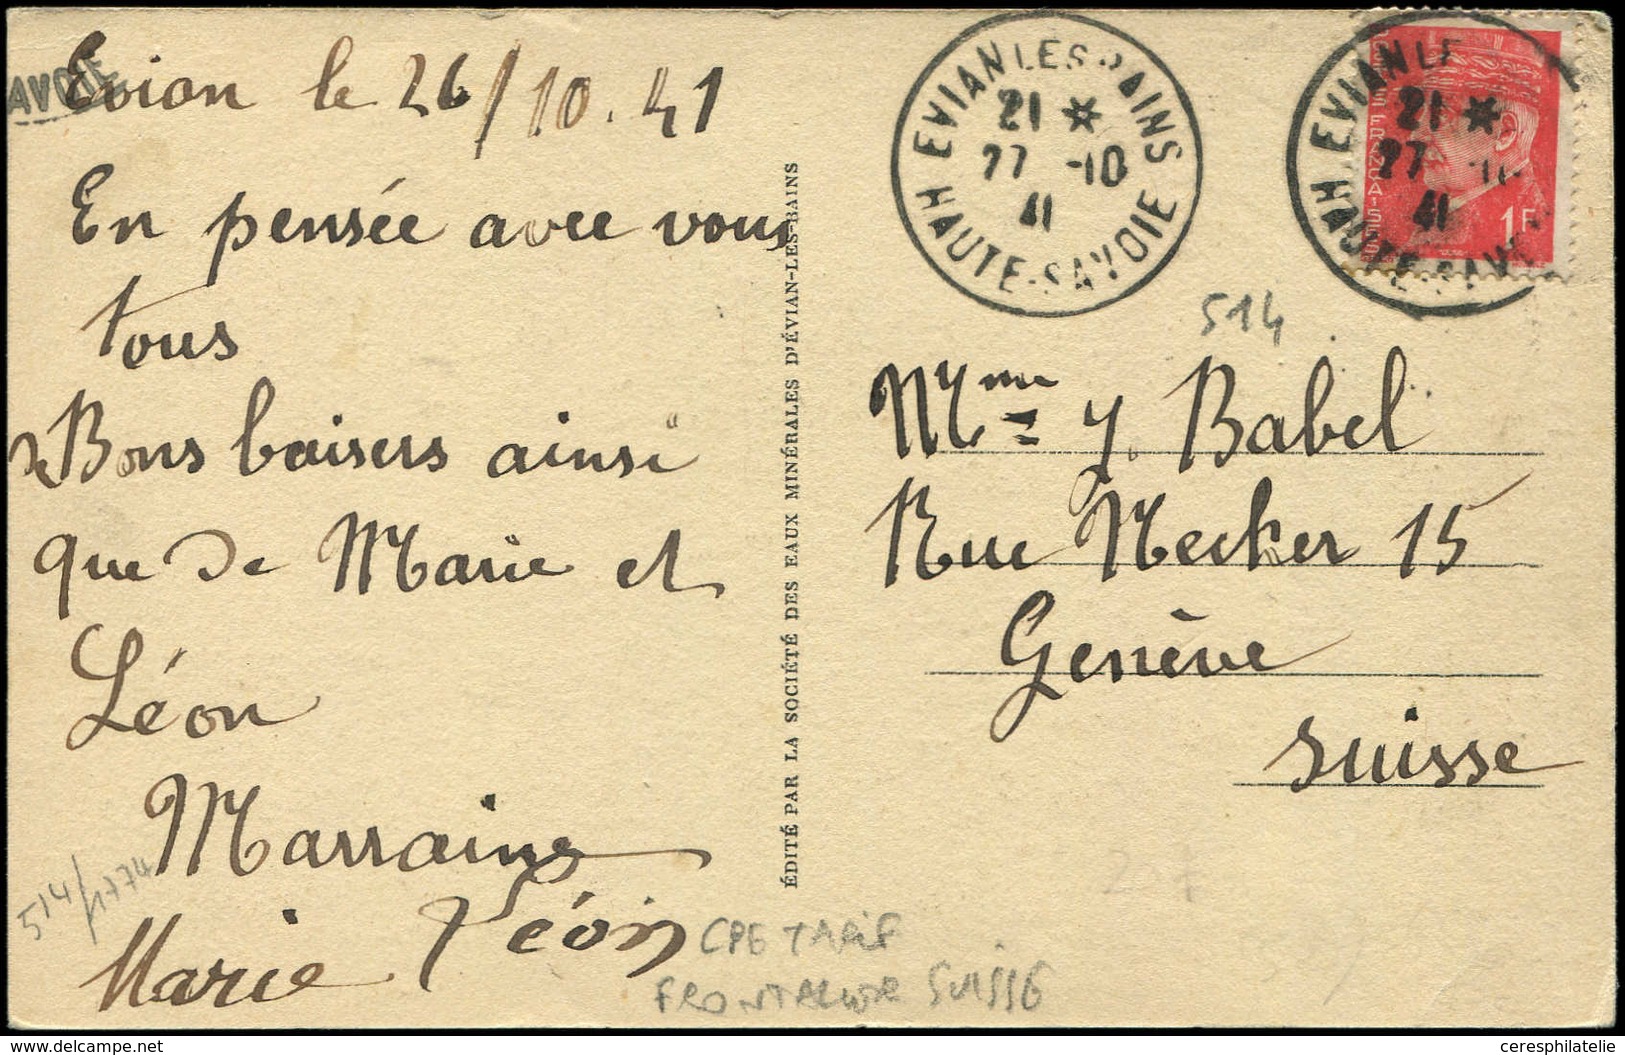 Evian le 26/10.41
En pensée avec vous
tous
Bons baisers ainsi
que de Marie et
Léon
Marraine
Marie Léon
514/1774
AVOIE
ÉDITÉ PAR LA SOCIÉTÉ DES EAUX MINÉRALES D'ÉVIAN-LES-BAINS
EVIAN LES BAINS
21 *
27 -10
41
HAUTE-SAVOIE
EVIAN LE
21 *
27
41
HAUTE-SAVOIE
1F
514
Mme J. Babel
Rue Necker 15
Genève
Suisse
CPE TARIF
FRONTALIER SUISSE
delcampe.net
ceresphilatelie